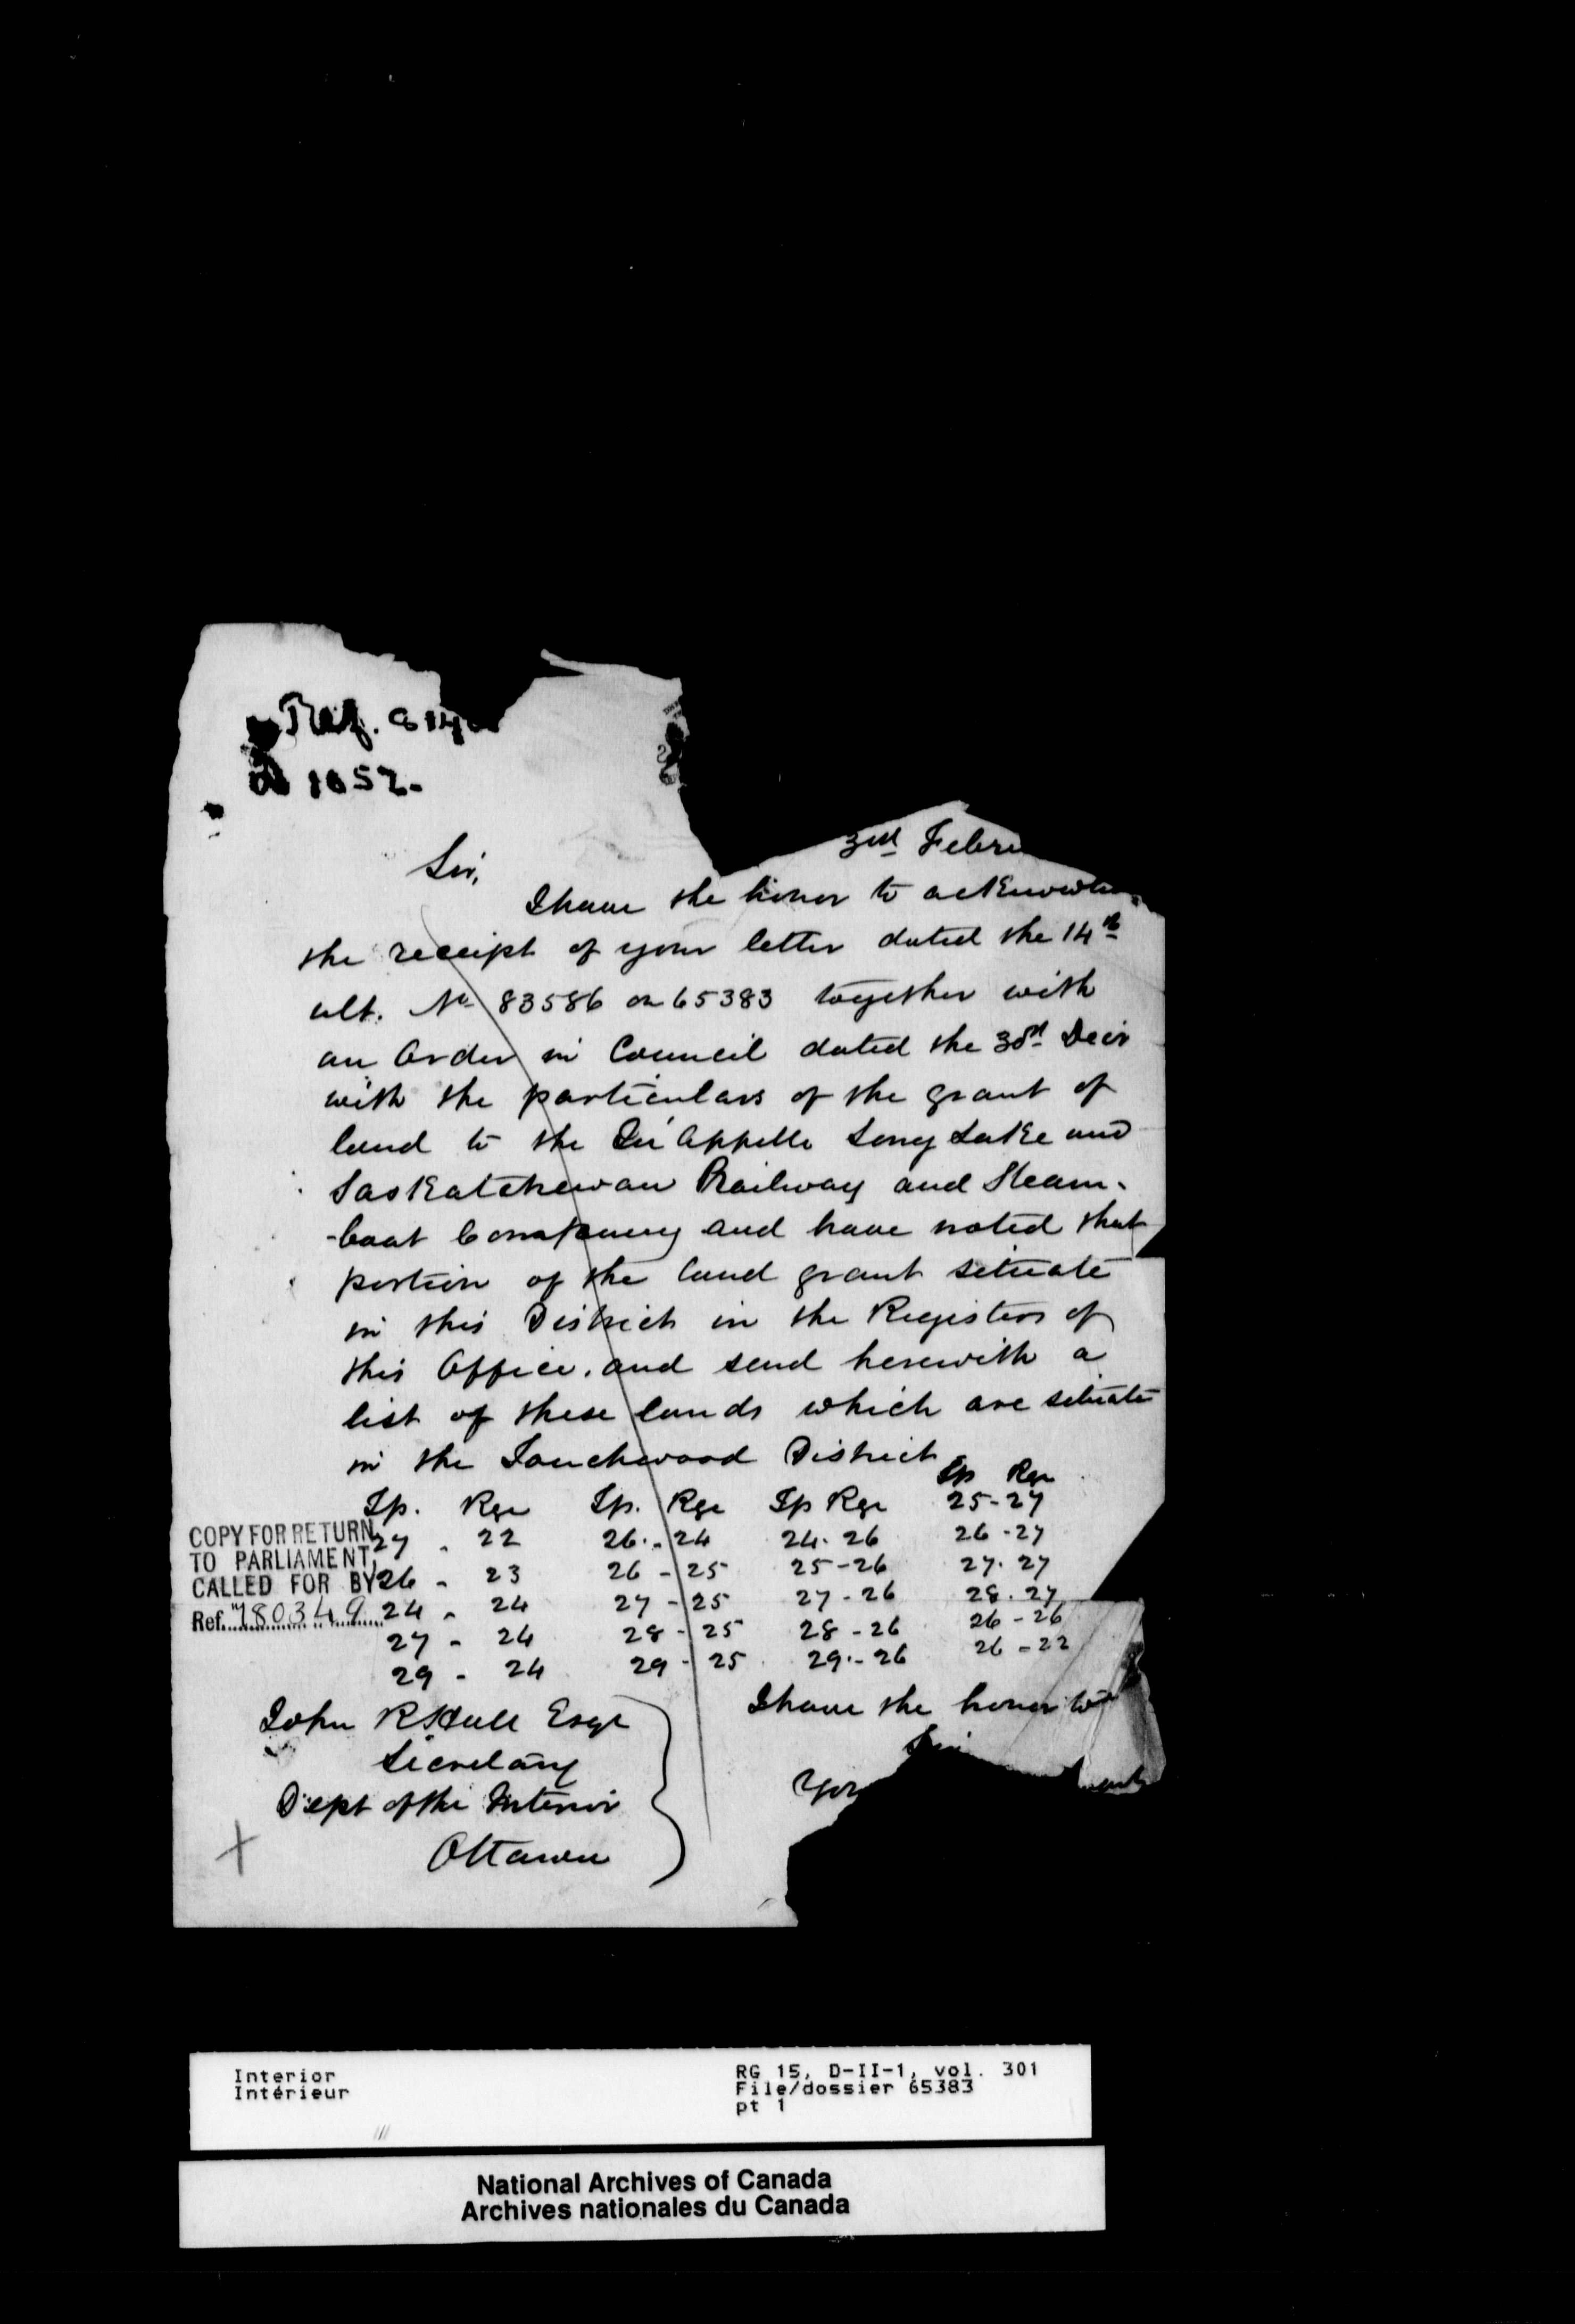 Ref. 814
1052.
3rd Febru
Sir,
I have the honor to acknowle
the receipt of your letter dated the 14th
ult. No 83586 on 65383 together with
an Order in Council dated the Decr
with the particulars of the grant of
land to the Qu'Appelle Long Lake and
Saskatchewan Railway and Steam-
-boat Company and have noted that
portion of the land grant situate
in this District in the Registers of
this Office. and send herewith a
list of these lands which are situate
in the Touchwood District
Tp. Rge Tp. Rge Tp Rge Tp Rge
27 - 22 26 - 24 24 - 26 25 - 27
26 - 23 26 - 25 25 - 26 26 - 27
24 - 24 27 - 25 27 - 26 27 - 27
27 - 24 28 - 25 28 - 26 28 - 27
29 - 24 29 - 25 29 - 26 26 - 26
26 - 22
COPY FOR RETURN
TO PARLIAMENT,
CALLED FOR BY
Ref. 180349
I have the honor to
Sir
You
John R Hall Esqr
Secretary
Dept of the Interior
Ottawa
Interior
Intérieur
RG 15, D-II-1, vol. 301
File/dossier 65383
pt 1
National Archives of Canada
Archives nationales du Canada